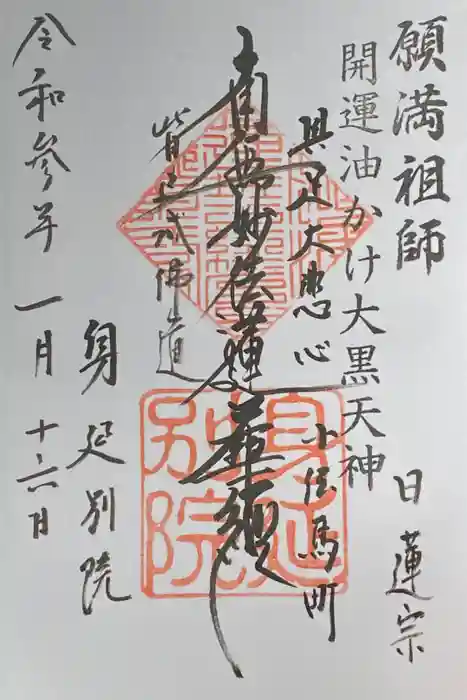 願満祖師
日蓮宗
開運油かけ大黒天神
具足大悲心
小伝馬町
南無妙法蓮華経
皆已成佛道
身延別院
令和参年一月十六日
身延
別院